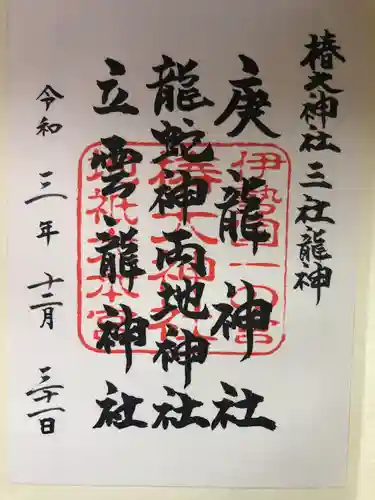 椿大神社 三社龍神
庚龍神社
龍蛇神両地神社
立雲龍神社
令和三年十二月三十一日
伊勢国一の宮
椿大神社
地祇大本宮